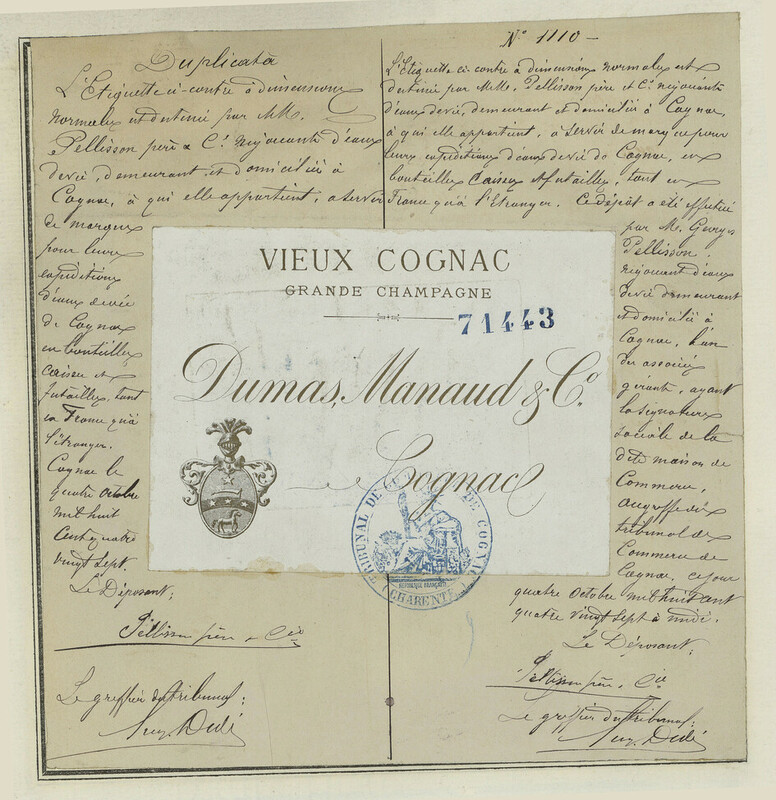 Duplicata
L'Etiquette ci-contre à dimensions
normales est destiné par MM.
Pellisson père & Cie Négociants d'eaux
devie, demeurant et domiciliés à
Cognac, à qui elle appartient, a servir
de marques
pour leurs
expéditions
d'eaux devie
de Cognac
en bouteilles
caisses et
futailles, tant
en France qu'à
l'étranger.
Cognac le
quatre octobre
mil huit
Cent quatre
vingt sept.
Le Déposant;
Pellisson père & Cie
Le greffier du tribunal;
N° 1110 -
L'Etiquette ci-contre à dimensions normales est
destiné par MMs. Pellisson père et Cie négociants
d'eaux devie, demeurant et domiciliés à Cognac,
à qui elle appartient, a servir de marque pour
leurs expéditions d'eaux devie de Cognac, en
bouteilles caisses et futailles, tant en
France qu'à l'Etranger. Ce dépôt a été effectué
par M. Georges
Pellisson,
négociant d'eaux
devie demeurant
et domicilié à
Cognac, l'un
des associés
gérants, ayant
la signature
sociale de la
dite maison de
Commerce,
au greffe du
tribunal de
Commerce de
Cognac, ce jour
quatre Octobre mil huit cent
quatre vingt sept à midi.
Le Déposant;
Pellisson père & Cie
Le greffier du tribunal;
VIEUX COGNAC
GRANDE CHAMPAGNE
71443
Dumas, Manaud & Co.
Cognac
TRIBUNAL DE DE COGNAC
REPUBLIQUE FRANÇAISE
(CHARENTE)